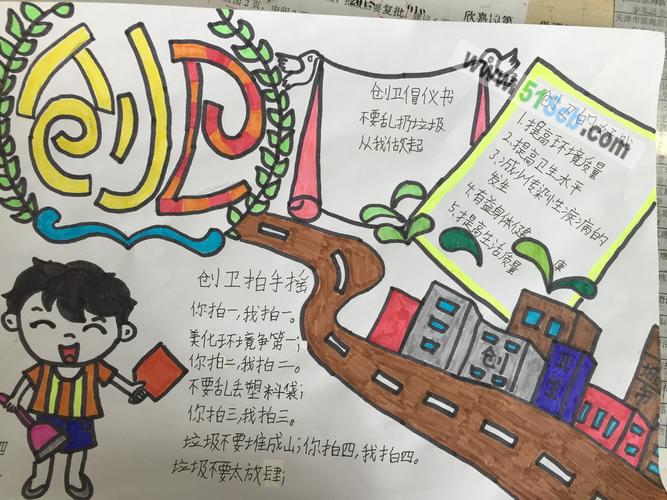 创卫
创卫倡仪书
不要乱扔垃圾
从我做起
www.51ssb.com
创卫的
1.提高环境质量
2.提高卫生水平
3.减少传染性疾病的
发生
4.有益身体健
康
5.提高生活质量
创卫拍手摇
你拍一,我拍一。
美化环境争第一;
你拍二,我拍二。
不要乱丢塑料袋;
你拍三,我拍三。
垃圾不要堆成山;你拍四,我拍四。
垃圾不要太放肆;
创
卫
城
市